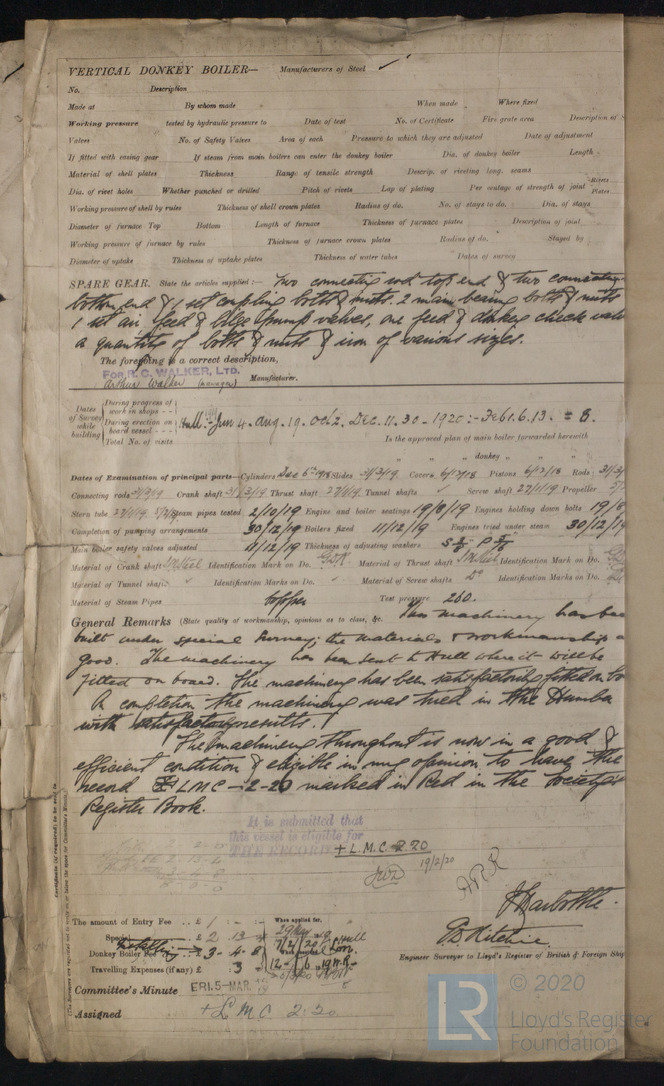 VERTICAL DONKEY BOILER— Manufacturers of Steel
No. Description
Made at By whom made When made Where fixed
Working pressure tested by hydraulic pressure to Date of test No. of Certificate Fire grate area Description of S
Valves No. of Safety Valves Area of each Pressure to which they are adjusted Date of adjustment
If fitted with easing gear If steam from main boilers can enter the donkey boiler Dia. of donkey boiler Length
Material of shell plates Thickness Range of tensile strength Descrip. of riveting long. seams
Dia. of rivet holes Whether punched or drilled Pitch of rivets Lap of plating Per centage of strength of joint Rivets Plates
Working pressure of shell by rules Thickness of shell crown plates Radius of do. No. of stays to do. Dia. of stays
Diameter of furnace Top Bottom Length of furnace Thickness of furnace plates Description of joint
Working pressure of furnace by rules Thickness of furnace crown plates Radius of do. Stayed by
Diameter of uptake Thickness of uptake plates Thickness of water tubes Dates of survey
SPARE GEAR. State the articles supplied:— Two connecting rod top end & two connecting
bottom end & 1 set coupling bolts & nuts. 2 main bearing bolts & nuts
1 set air, feed & bilge pump valves, one feed & donkey check valve
a quantity of bolts & nuts & iron of various sizes.
The foregoing is a correct description,
FOR R. C. WALKER, LTD.
Arthur Walker (manager) Manufacturer.
Dates of Survey while building
During progress of work in shops - -
During erection on board vessel - - -
Total No. of visits
Hull :- Jun 4. Aug. 19. Oct 2. Dec. 11. 30 - 1920 :- Feb 1. 6. 13. = 8.
Is the approved plan of main boiler forwarded herewith
" " " donkey " " "
Dates of Examination of principal parts—Cylinders Dec 6th 1918 Slides 31/3/19 Covers 6/12/18 Pistons 6/12/18 Rods 31/3/
Connecting rods 31/3/19 Crank shaft 31/3/19 Thrust shaft 27/1/19 Tunnel shafts Screw shaft 27/1/19 Propeller
Stern tube 27/1/19 Steam pipes tested 2/10/19 Engine and boiler seatings 19/8/19 Engines holding down bolts 19/8/
Completion of pumping arrangements 30/12/19 Boilers fixed 11/12/19 Engines tried under steam 30/12/19
Main boiler safety valves adjusted 11/12/19 Thickness of adjusting washers
Material of Crank shaft Identification Mark on Do. Material of Thrust shaft Identification Mark on Do.
Material of Tunnel shafts Identification Marks on Do. Material of Screw shafts Do Identification Marks on Do.
Material of Steam Pipes Copper Test pressure 260.
General Remarks (State quality of workmanship, opinions as to class, &c. This machinery has been
built under special survey; the materials & workmanship a
good. The machinery has been sent to Hull where it will be
fitted on board. The machinery has been satisfactorily fitted on bo
On completion the machinery was tried in the Humber
with satisfactory results.
The machinery throughout is now in a good &
efficient condition & eligible in my opinion to have the
record LMC-2-20 marked in Red in the Society's
Register Book.
It is submitted that
this vessel is eligible for
THE RECORD. + L.M.C. 2.20
19/2/20
The amount of Entry Fee .. £ 1 : - : When applied for,
Special .. £ 2 . 13
Donkey Boiler Fee £ 3 - 4 - 8
Travelling Expenses (if any) £ 3
J Harbottle.
Engineer Surveyor to Lloyd's Register of British & Foreign Ship
Committee's Minute FRI. 5-MAR.
Assigned + LMC 2.20
Certificate (if required) to be sent to
© 2020
LR
Lloyd's Register
Foundation